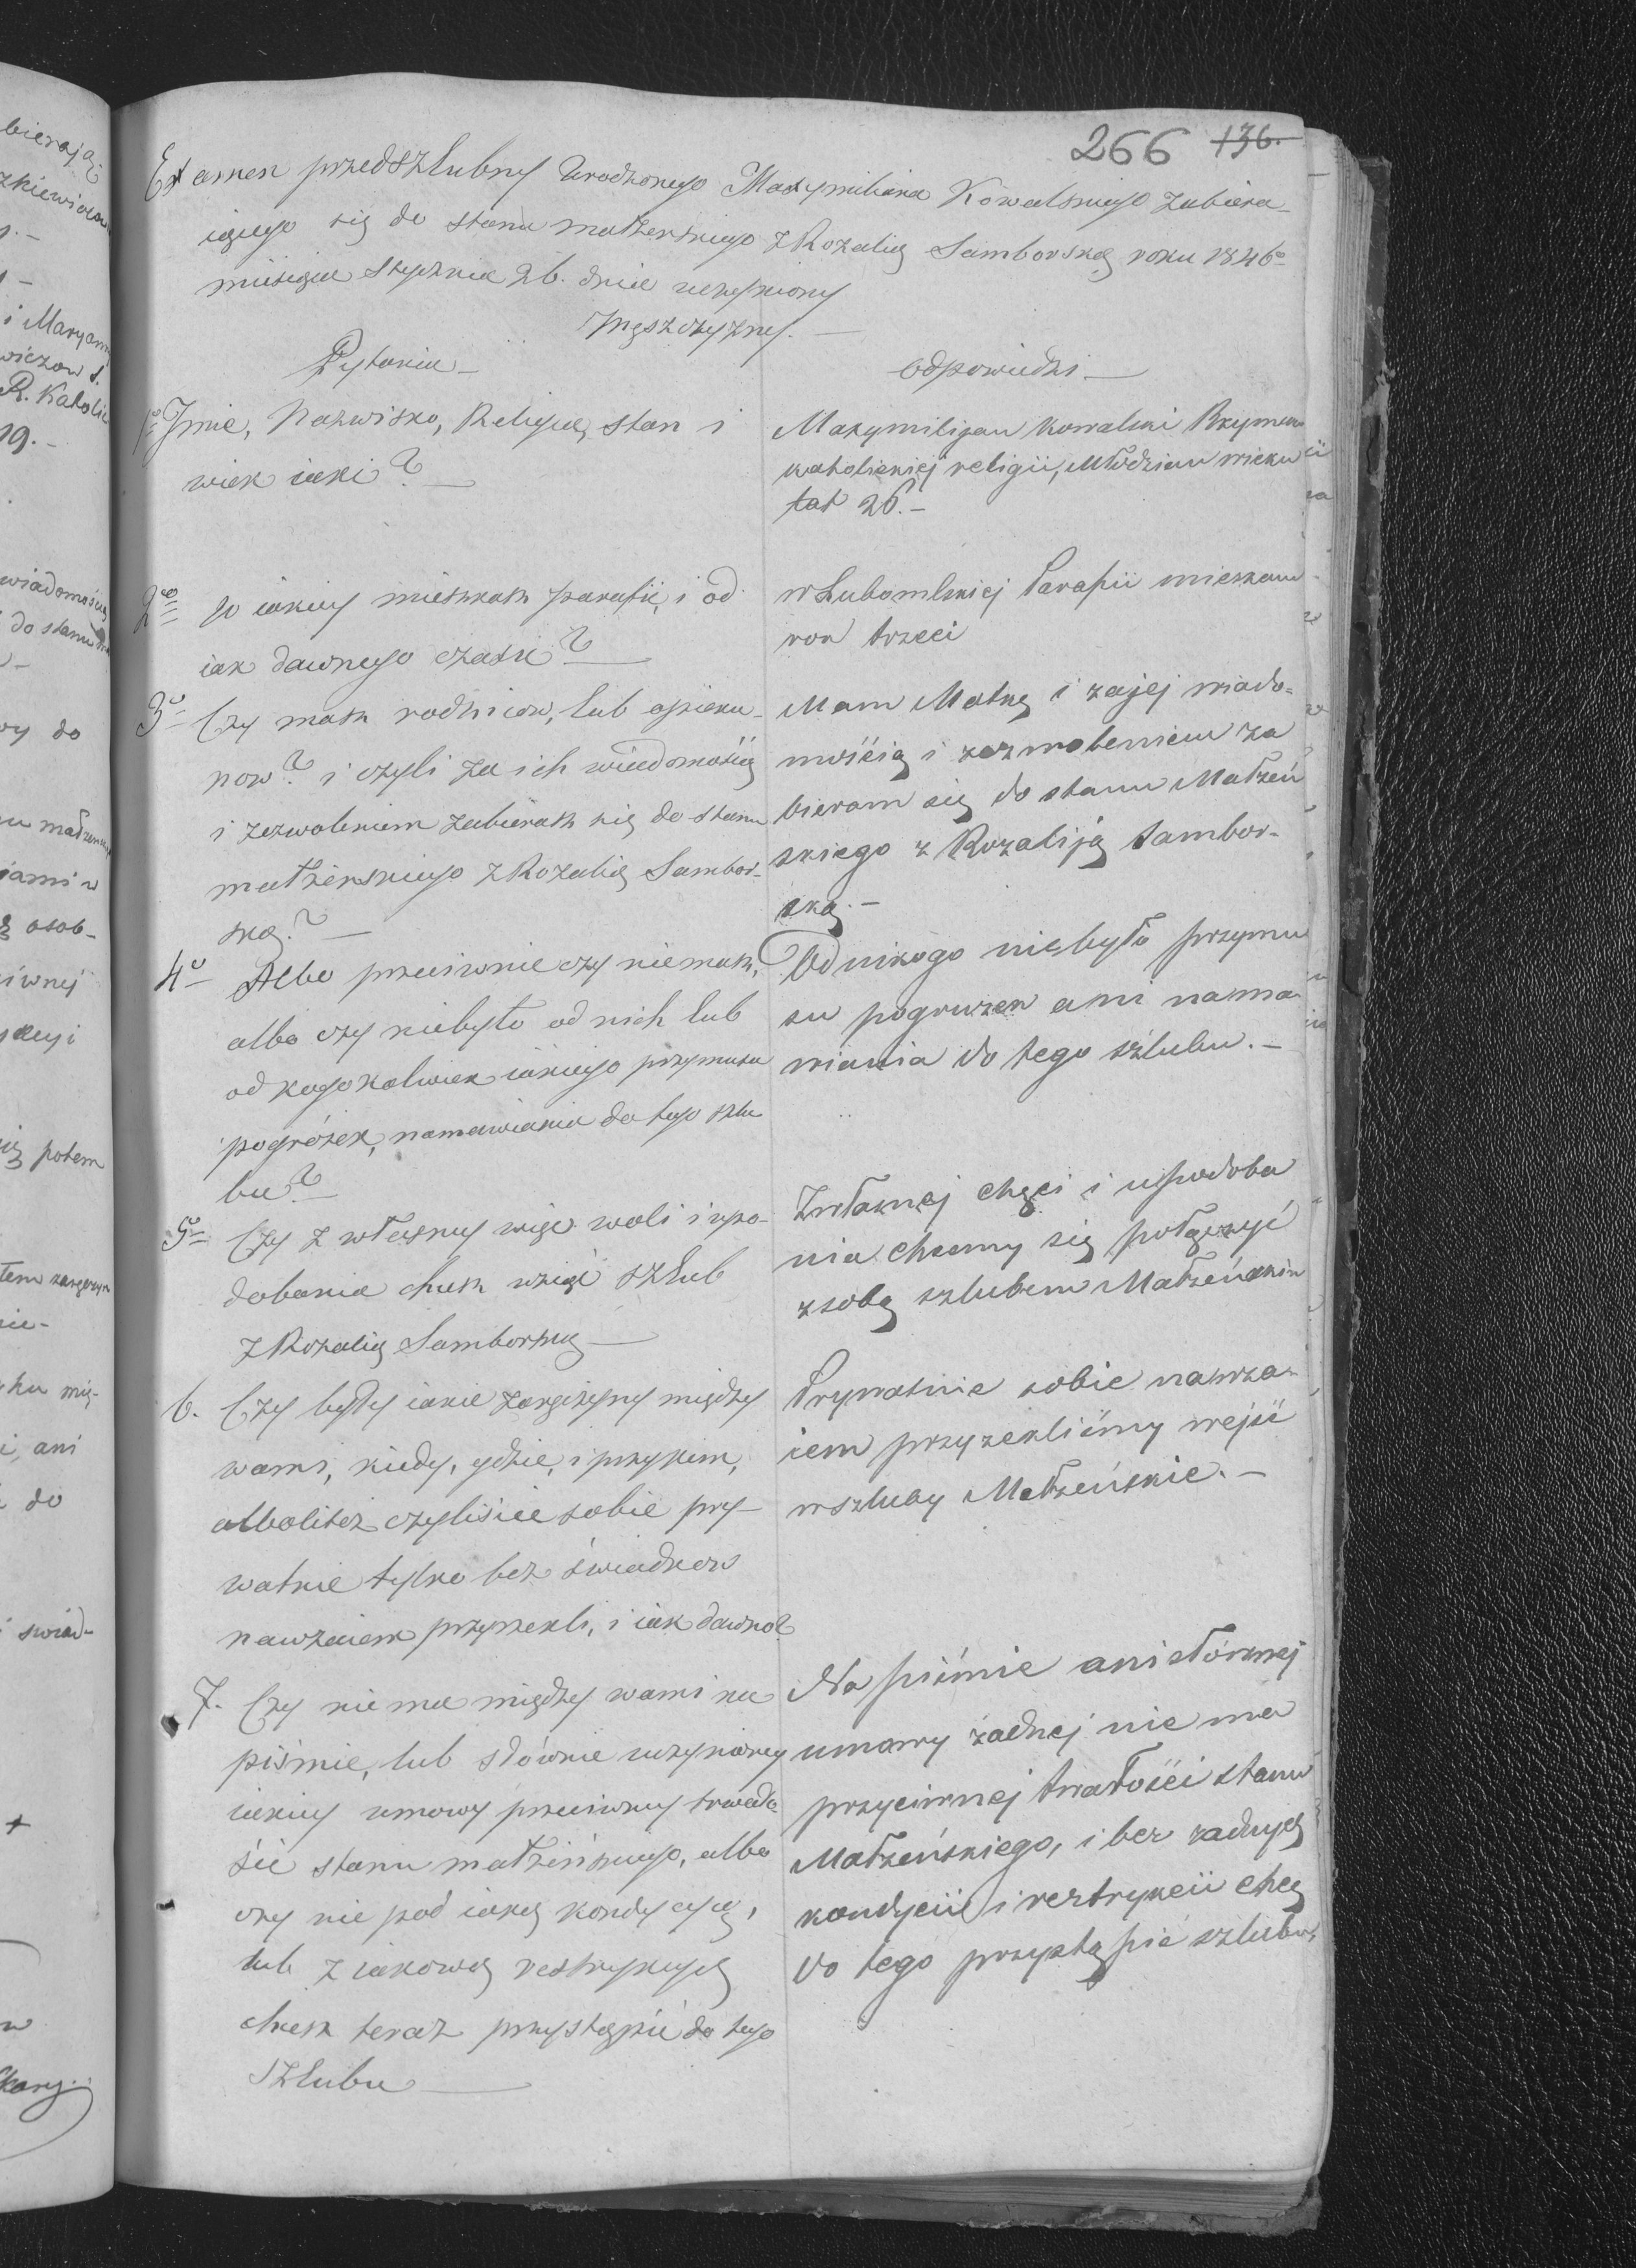 266 136.
Examen przedszlubny Urodzonego Maxymiliana Kowalskiego zabiera-
iącego się do stanu małżenskiego z Rozalią Samborską roku 1846o
miesiąca Stycznia 26. dnia uczyniony
Męszczyzny.—
Pytania— Odpowiedzi—
1o Jmie, Nazwisko, Religia, stan i
wiek iaki?—
Maxymilijan Kowalski Rzymsko
katolickiej religii, Młodzian wieku
lat 26.—
2o W iakiey mieszkasz parafii, i od
iak dawnego czasu?—
w Lubomlskiej Parafii mieszkam
rok trzeci
3o Czy masz rodzicow, lub opieku-
now? i czyli za ich wiadomością
i zezwoleniem zabierasz się do stanu
małżenskiego z Rozalią Sambor-
ską?—
Mam Matkę i za jej wiado-
mościa i zezwoleniem za
bieram się do stanu Małżeń
skiego z Rozaliją Sambor-
ską.—
4o Albo przeciwnie czy niemasz,
albo czy niebyło od nich lub
od kogokolwiek iakiego przymusu
pogróżek, namawiania do tego szlu
bu?—
Od nikogo niebyło przymu
su pogruzek ani nama
wiania do tego szlubu.—
5o Czy z własney więc woli i upo-
dobania chcesz wziąć szlub
z Rozalią Samborską—
Zwłasnej chęci i upodoba
nia chcemy się połączyć
z sobą szlubem Małżeńskim
6. Czy były iakie zaręczyny między
wami, kiedy, gdzie, i przy kim,
albolitez czyliście sobie pry-
watnie tylko bez świadkow
nawzaiem przyrzekli, i iak dawno?
Prywatnie sobie nawza-
iem przyrzekliśmy wejść
w szluby Małżeńskie.—
7. Czy nie ma między wami na
piśmie, lub słównie uczynioney
iakiey umowy przeciwney trwało
ści stanu małżeńskiego, albo
czy nie pod iaką kondycyą,
lub z iakową restrykcyą
chcesz teraz przystąpić do tego
Szlubu—
Na piśmie ani słównej
umowy żadnej nie ma
przyciwnej trwałości stanu
Małżeńskiego, i bez żadnych
kondycii i restrykcii chcę
do tego przystąpić szlubu,